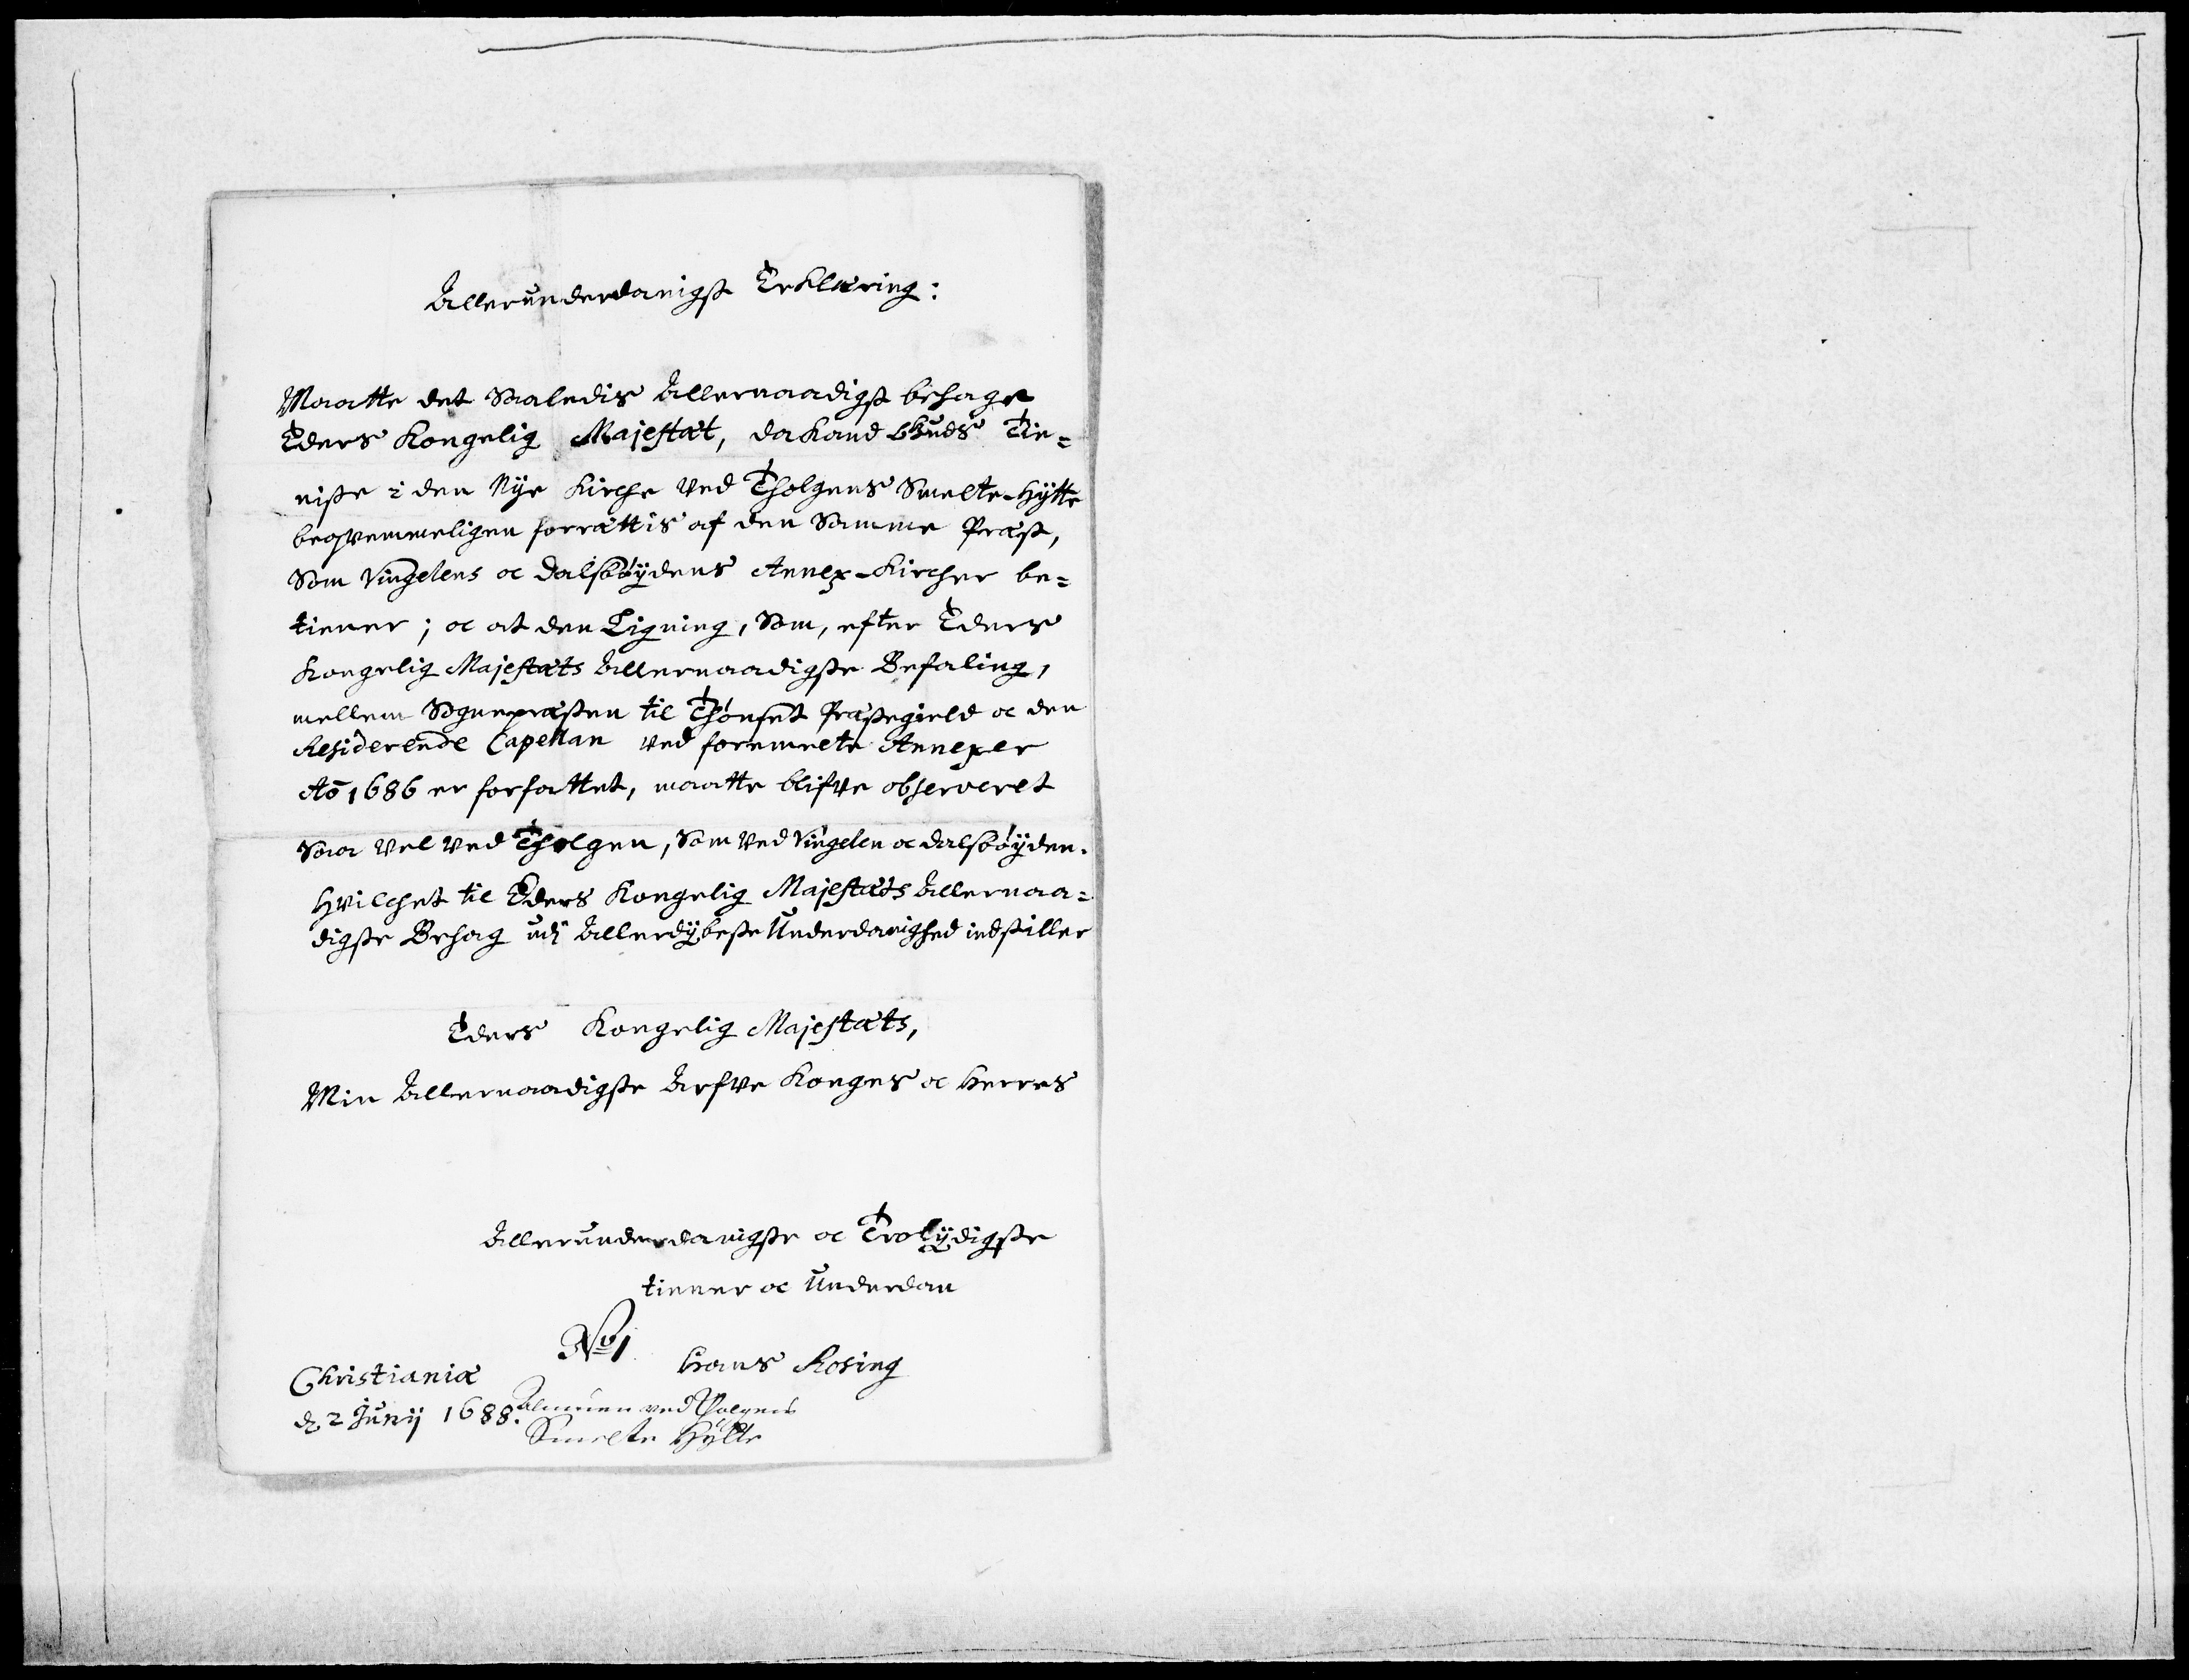 Allerunderdanigst Erklæring:
Maatte det Saaledis Allernaadigst behage
Eders Kongelig Majestæt, da kand Guds Tie=
niste i den Nye Kirche ved Tholgens Smelte-Hytte
beqvemmeligen forrættis af den Samme Præst,
Som Vingelens oc Dalsbøÿdens Annex-Kircher be=
tiener; oc at den Ligning, Som, efter Eders
Kongelig Majestæts Allernaadigste Befaling,
mellem Sognepræsten til Thønset Præstegield oc den
Residerende Capellan ved foremelte Annexer
Aō 1686 er forfattet, maatte blifve observeret
Saa vel ved Tholgen, Som ved Vingelen oc Dalsbøÿden.
Hvilchet til Eders Kongelig Majestæts Allernaa=
digste Behag udj Allerdÿbeste Underdanighed indstiller
Eders Kongelig Majestæts,
Min Allernaadigste Arfve Konges oc Herres
Allerunderdanigste oc Trolÿdigste
tiener oc Underdan
No 1
Hans Rosing
Christianiæ
d. 2 Junij 1688.
Almuen ved Tholgens
Smelte Hytte